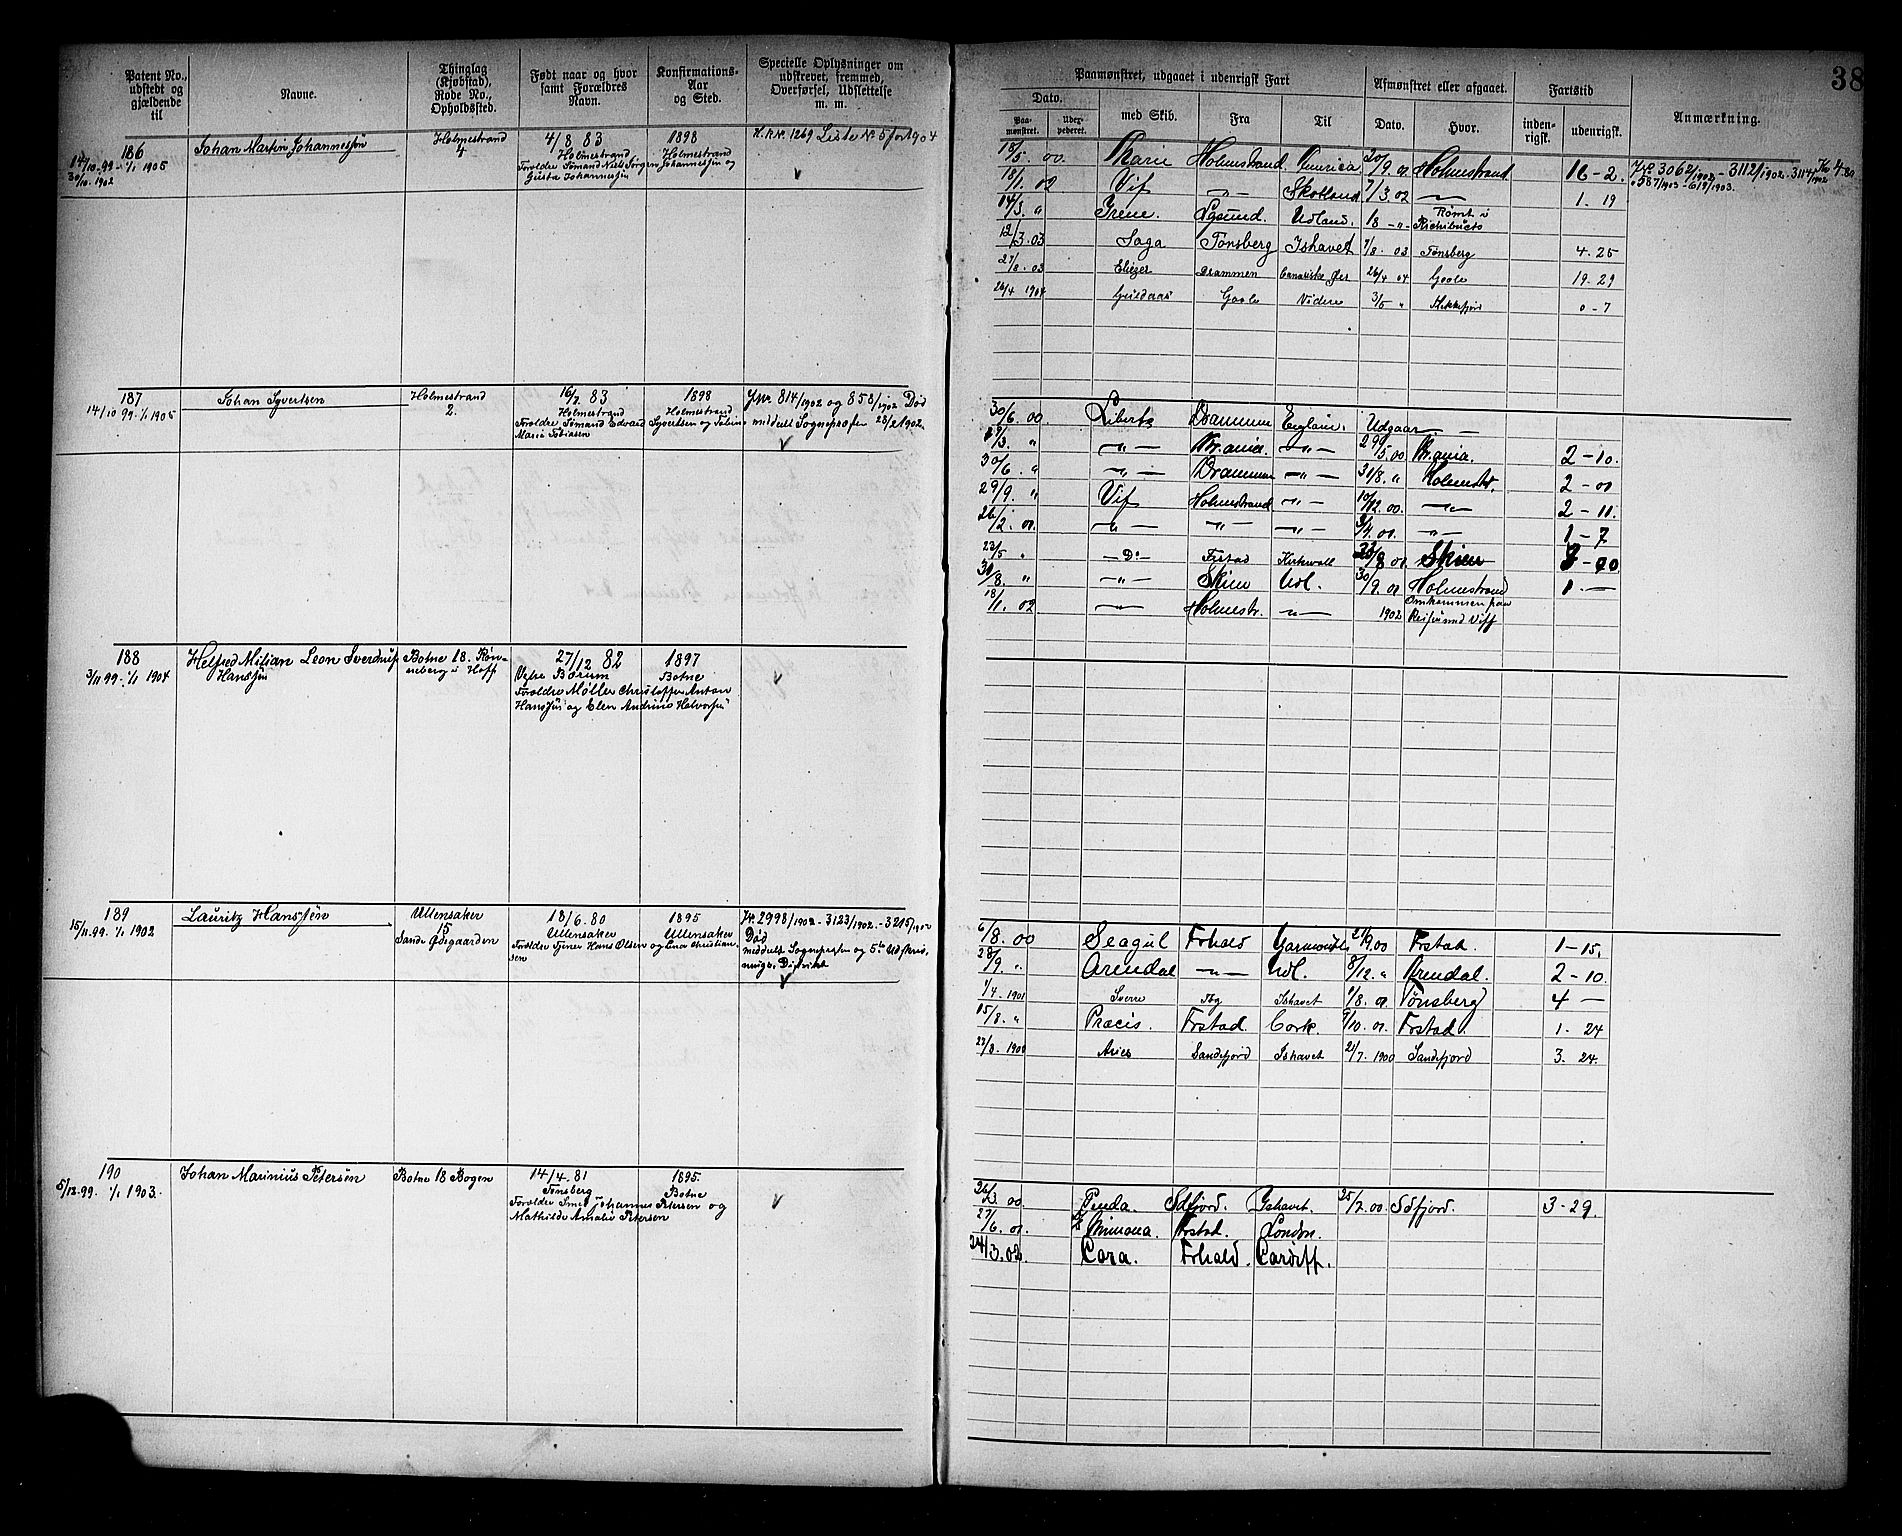 38
Patent No., udstedt og gjældende til
Navne.
Thinglag (Kjøbstad), Rode No., Opholdssted.
Født naar og hvor samt Forældres Navn.
Konfirmations-Aar og Sted.
Specielle Oplysninger om udskrevet, fremmed, Overførsel, Udslettelse m. m.
Paamønstret, udgaaet i udenrigsk Fart
Afmønstret eller afgaaet.
Fartstid
Anmærkning.
Dato.
Paa-mønstret.
Udex-pederet.
med Skib.
Fra
Til
Dato.
Hvor.
inden-rigsk.
udenrigsk.
186
14/10 99 - 1/1 1905
30/10. 1902
Johan Martin Johannessøn
Holmestrand
4
4/8 83
Holmestrand
Forældre Sømand Niels Jørgen Johannessøn og
Gusta Johannessøn
1898
Holmestrand
H.R.Nº 1269 Liste Nº 5 for 1904
15/5. 00. Marie Holmestrand America 20/9 01 Holmestrand 16 - 2.
18/1. 02 Vif -"- Skotland 7/3. 02 -"- 1 - 19
14/3. " Irene. Udland. 18 -"- Rømt i Richibucto
12/3. 03 Saga Tønsberg Ishavet 7/8. 03 Tønsberg 4. 25
27/8. 03 Eliezer Drammen Canariske Øer 26/4 04 Goole 19 - 29
26/4 1904 Guldaas Goole Videre 3/5 " Flekkefjord 0 - 7
Jº 3062/1902 - 3112/1902 - 3114/1902
587/1903 - 619/1903.
187
14/10 99. 1/1 1905
Johan Syvertsen
Holmestrand
2.
16/7 83
Holmestrand
Forældre Sømand Edvard Syvertsen og
Maria Tobiasen
1898
Holmestrand
Jnr 814/1902 og 858/1902 Død
meddelt Sogneprsten 28/2 1902.
30/6. 00. Liberta Drammen England. Udgaar
" -"- Kr.ania. -"- 29/5. 00 Kr.ania. 2 - 10.
30/6. " -"- Drammen -"- 31/8. " Holmestr. 2 - 01
29/9. " Vif Holmestrand -"- 10/12. 00. -"- 2 - 11.
26/2. 01. -"- -"- -"- 3/4. 01. -"- 1 - 7
23/5 " -Dº- Frstad Kirkwall Skien
30/8. " -"- Skien Udl. 30/9. 01 Holmestrand 1. -
18/1. 02 -"- Holmestr. -"- 1902 Omkommen paa
Reise med Viff
188
3/11 99 - 1/1 1904
Helfred Milian Leon Sverdrup
Hanssøn
Botne 18. Røn-
neberg i Hoff
27/12 82
Vestre Bærum
Forældre Møller Christoffer Anton
Hanssøn og Elen Andrine Halvorsen
1897
Botne
189
15/11. 99. 1/1 1902
Lauritz Hanssen
Ullensaker
15
Sande Ødegaarden
18/6. 80
Ullensaker
Forældre Tjener Hans Olsen og Lina Christian-
sen
1895
Ullensaker
Jº. 2998/1902 - 3123/1902. - 3215/1902
Død
meddelt Sogneprsten og 5te Udskriv-
nings. Distrikt
6/8. 00 Seagul Frhald Yarmouth 21/9. 00 Frstad. 1 - 15.
28/9. " Arendal -"- Udl. 8/12. " Arendal. 2 - 10.
1/4. 1901 Sverre Tbg Ishavet 1/8. 01. Tønsberg 4 -
15/8. " Præcis. Frstad. Cork. 9/10. 01. Frstad. 1. 24
1900 Aries Sandefjord Ishavet 21/7. 1900 Sandefjord 3. 24.
190
5/12. 99. 1/1 1903.
Johan Marinius Petersen
Botne 18 Bogen
14/4. 81
Tønsberg
Forældre Smed Johannes Petersen og
Mathilde Amalie Petersen
1895.
Botne
26/3 00 Penda. Sdfjord. Ishavet. 25/7. 00 Sdfjord. 3 - 29.
27/6. 01. Mimona. Frstad. London.
24/3. 02. Cara. Frhald. Cardiff.